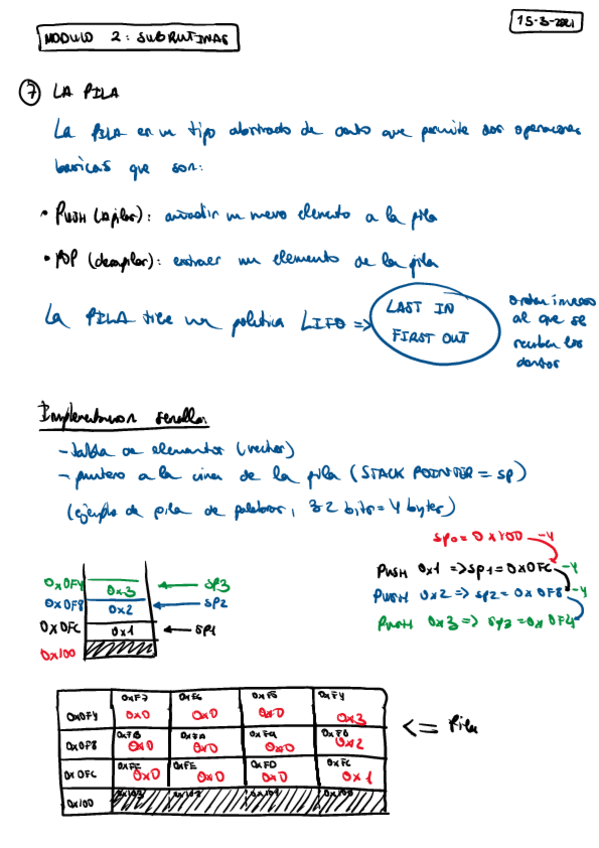 15-3-2021
MODULO 2: SUBRUTINAS
7 LA PILA
La PILA es un tipo abstracto de dato que permite dos operaciones
basicas que son:
• PUSH (apilar): añadir un nuevo elemento a la pila
• POP (desapilar): extraer un elemento de la pila
La PILA tiene una politica LIFO => LAST IN
FIRST OUT
orden inverso
al que se
reciben los
datos
Implementacion sencilla
- tabla de elementos (vector)
- puntero a la cima de la pila (STACK POINTER = SP)
(ejemplo de pila de palabras, 32 bits = 4 bytes)
SP0 = 0x100 -4
PUSH 0x1 => SP1 = 0x0FC -4
PUSH 0x2 => SP2 = 0x0F8 -4
PUSH 0x3 => SP3 = 0x0F4
0x0F4 0x3 SP3
0x0F8 0x2 SP2
0x0FC 0x1 SP1
0x100
0xF7 0xF6 0xF5 0xF4
0x0F4 0x0 0x0 0x0 0x3 <= Pila
0xFB 0xFA 0xF9 0xF8
0x0F8 0x0 0x0 0x0 0x2
0xFF 0xFE 0xFD 0xFC
0x0FC 0x0 0x0 0x0 0x1
0x103 0x102 0x101 0x100
0x100